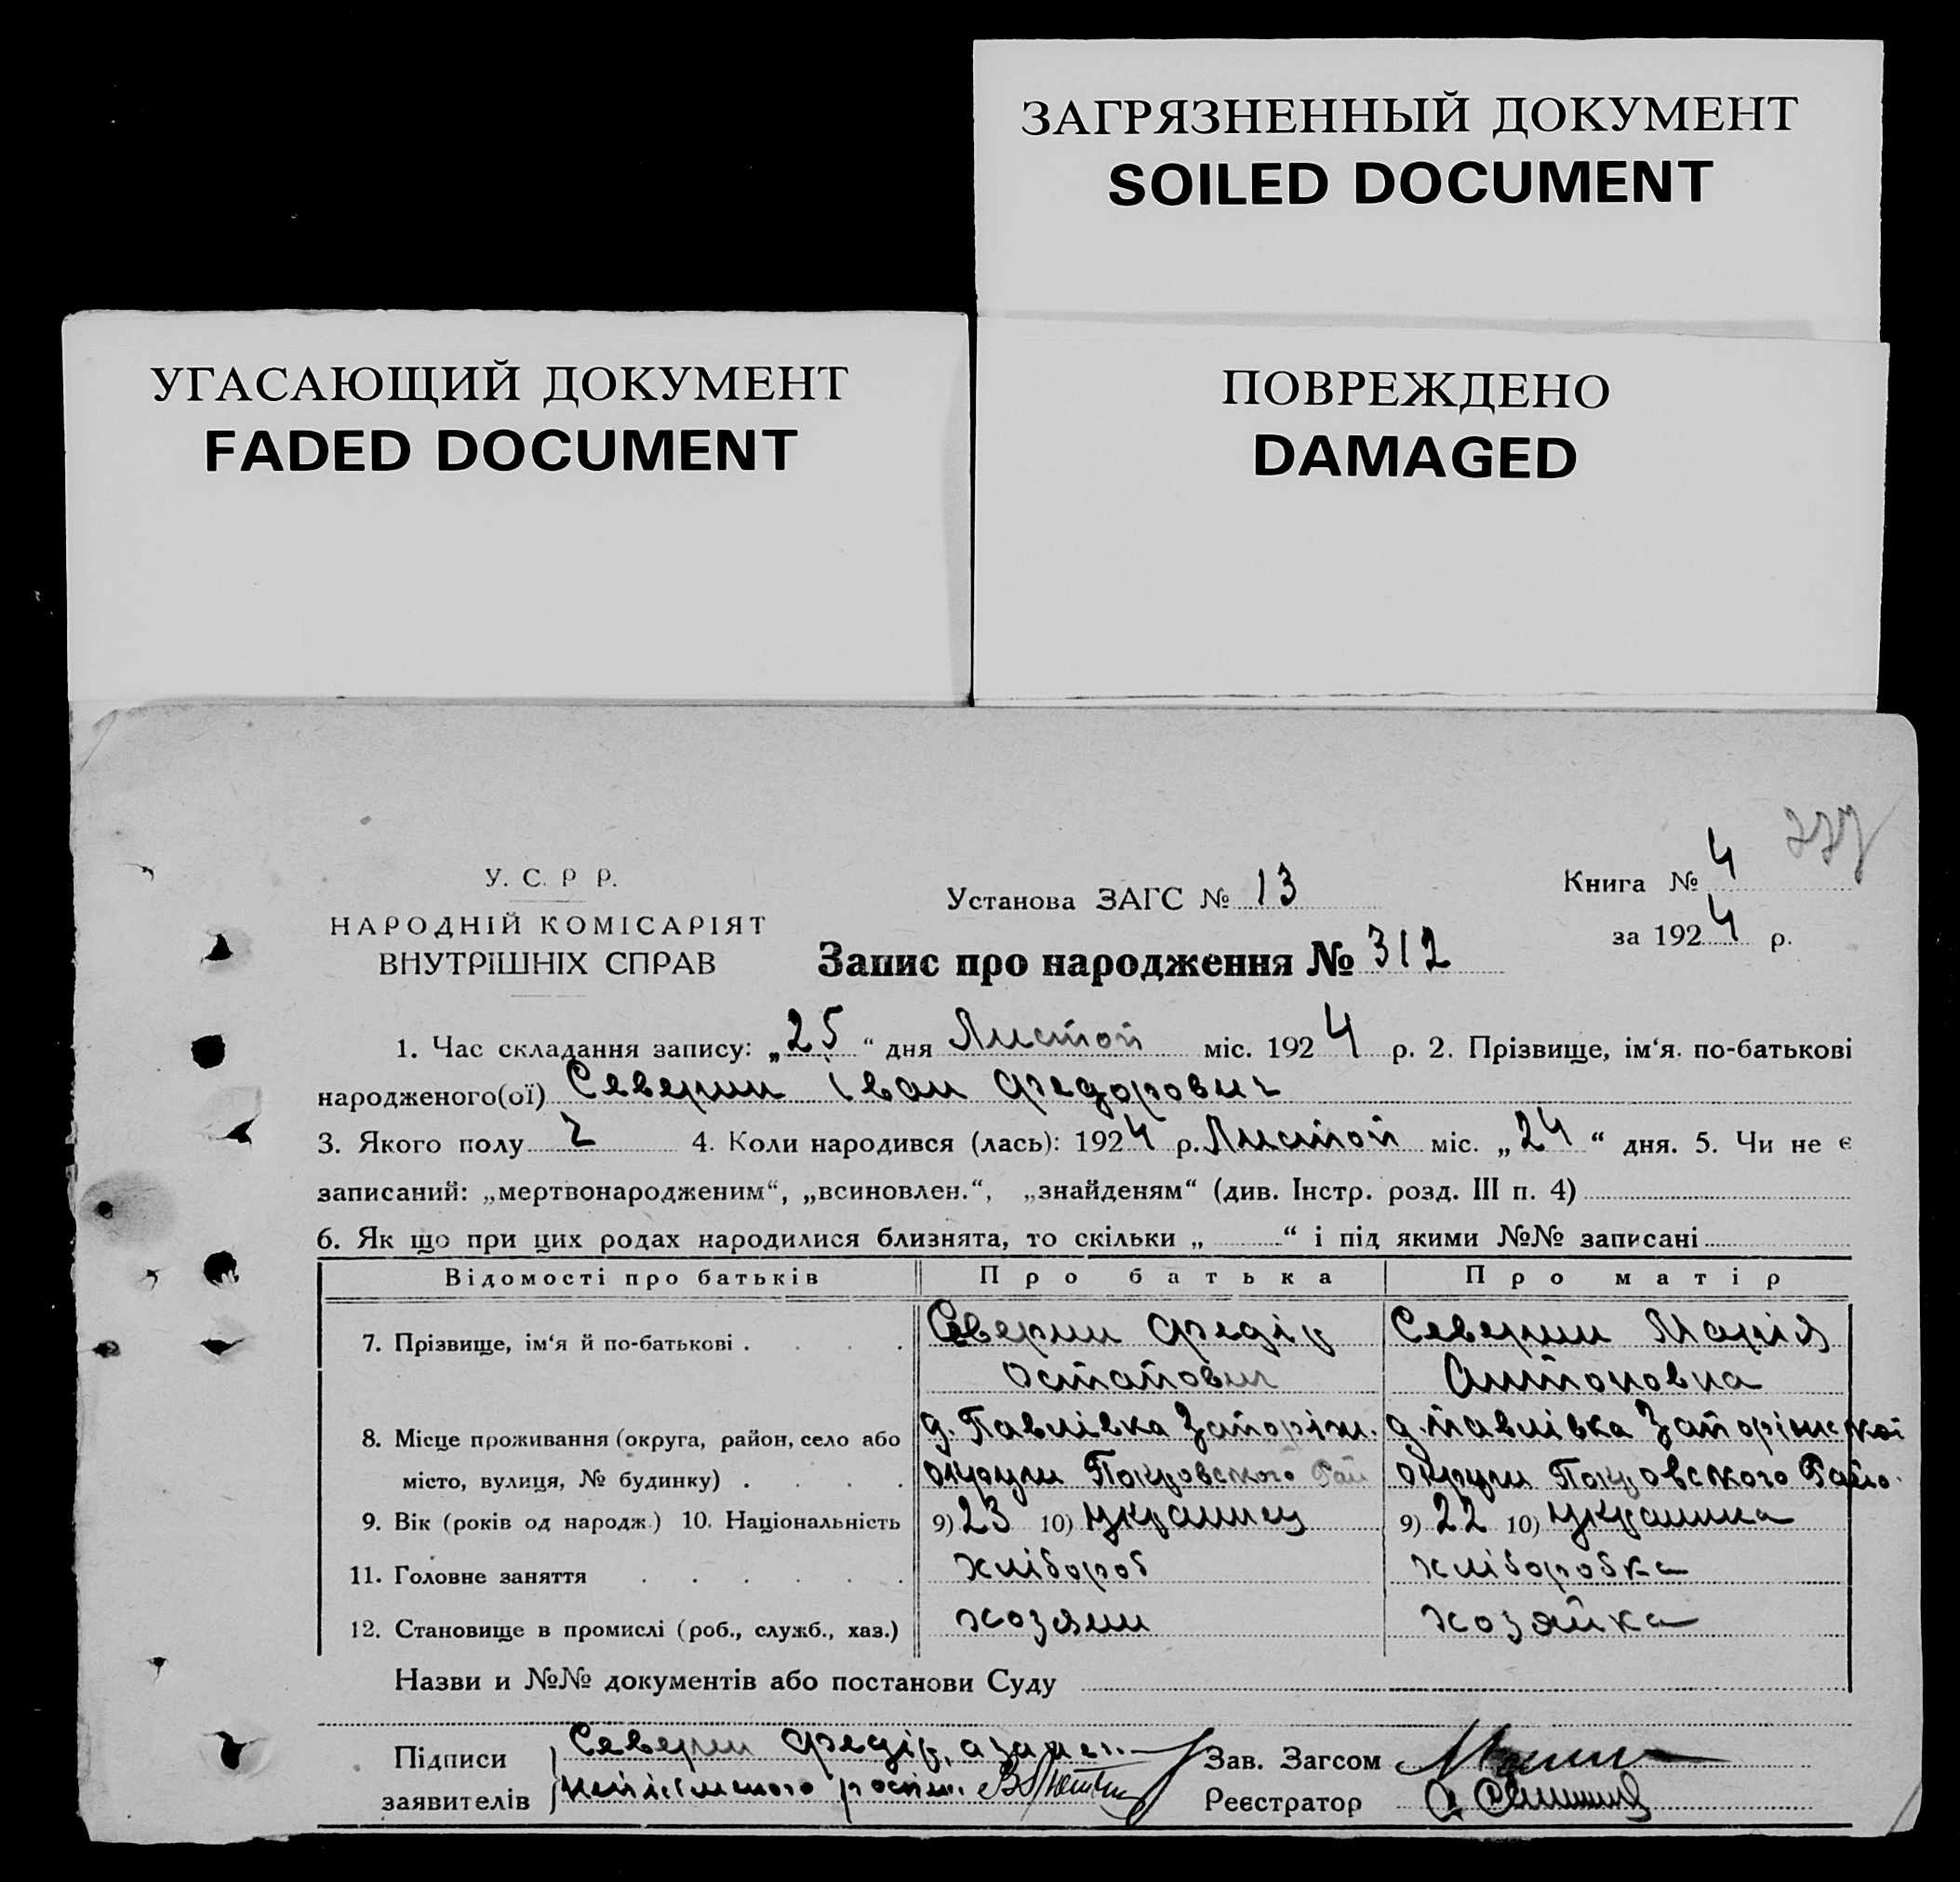 ЗАГРЯЗНЕННЫЙ ДОКУМЕНТ
SOILED DOCUMENT
УГАСАЮЩИЙ ДОКУМЕНТ
FADED DOCUMENT
ПОВРЕЖДЕНО
DAMAGED
У. С. Р Р.
НАРОДНІЙ КОМІСАРІЯТ
ВНУТРІШНІХ СПРАВ
Установа ЗАГС № 13
Запис про народження № 312
Книга № 4
за 1924 р.
1. Час складання запису: „25“ дня Листоп міс. 1924 р. 2. Прізвище, ім‘я. по-батькові
народженого(ої) Северин Іван Федорович
3. Якого полу Ч 4. Коли народився (лась): 1924 р. Листоп міс. „24“ дня. 5. Чи не є
записаний: „мертвонародженим“, „всиновлен.“, „знайденям“ (див. Інстр. розд. III п. 4)
6. Як що при цих родах народилися близнята, то скільки „ “ і під якими №№ записані
Відомості про батьків Про батька Про матір
7. Прізвище, ім‘я й по-батькові . . . . Северин Федір Северин Марія
Остапович Антоновна
8. Місце проживання (округа, район, село або д. Павлівка Запоріж. д. Павлівка Запоріжської
місто, вулиця, № будинку) . . . . округи Покровського Рай округи Покровського Райо.
9. Вік (років од народж.) 10. Національність 9) 23 10) Украинец 9) 22 10) Украинка
11. Головне заняття . . . . . . хлібороб хліборобка
12. Становище в промислі (роб., служб., хаз.) хозяин хозяйка
Назви и №№ документів або постанови Суду
Підписи Северин Федір, а за Зав. Загсом
заявителів Реєстратор